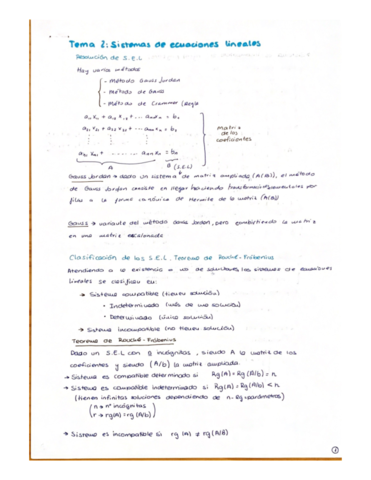 Tema 2: Sistemas de ecuaciones lineales
Resolución de S.E.L
Hay varios métodos
- Método Gauss Jordan
- Método de Gauss
- Método de Crammer (Regla
Matriz de los coeficientes
A
B (S.E.L)
Gauss Jordan → dado un sistema de matriz ampliada (A/B), el método
de Gauss Jordan consiste en llegar haciendo transformaciones elementales por
filas a la forma canónica de Hermite de la matriz (A/B)
Gauss → variante del método Gauss Jordan, pero convirtiendo la matriz
en una matriz escalonada
Clasificación de los S.E.L. Teorema de Rouché-Frobenius
Atendiendo a la existencia o no de soluciones, los sistemas de ecuaciones
lineales se clasifican en:
→ Sistema compatible (tienen solución)
• Indeterminado (más de una solución)
• Determinado (única solución)
→ Sistema incompatible (no tienen solución)
Teorema de Rouché-Frobenius
Dado un S.E.L con n incógnitas, siendo A la matriz de los
coeficientes y siendo (A/b) la matriz ampliada.
→ Sistema es compatible determinado si Rg(A) = Rg(A/b) = n
→ Sistema es compatible indeterminado si Rg(A) = Rg(A/b) < n
(tienen infinitas soluciones dependiendo de n-Rg parámetros)
n → nº incógnitas
r → rg(A) = rg(A/b)
→ Sistema es incompatible si rg(A) ≠ rg(A/B)